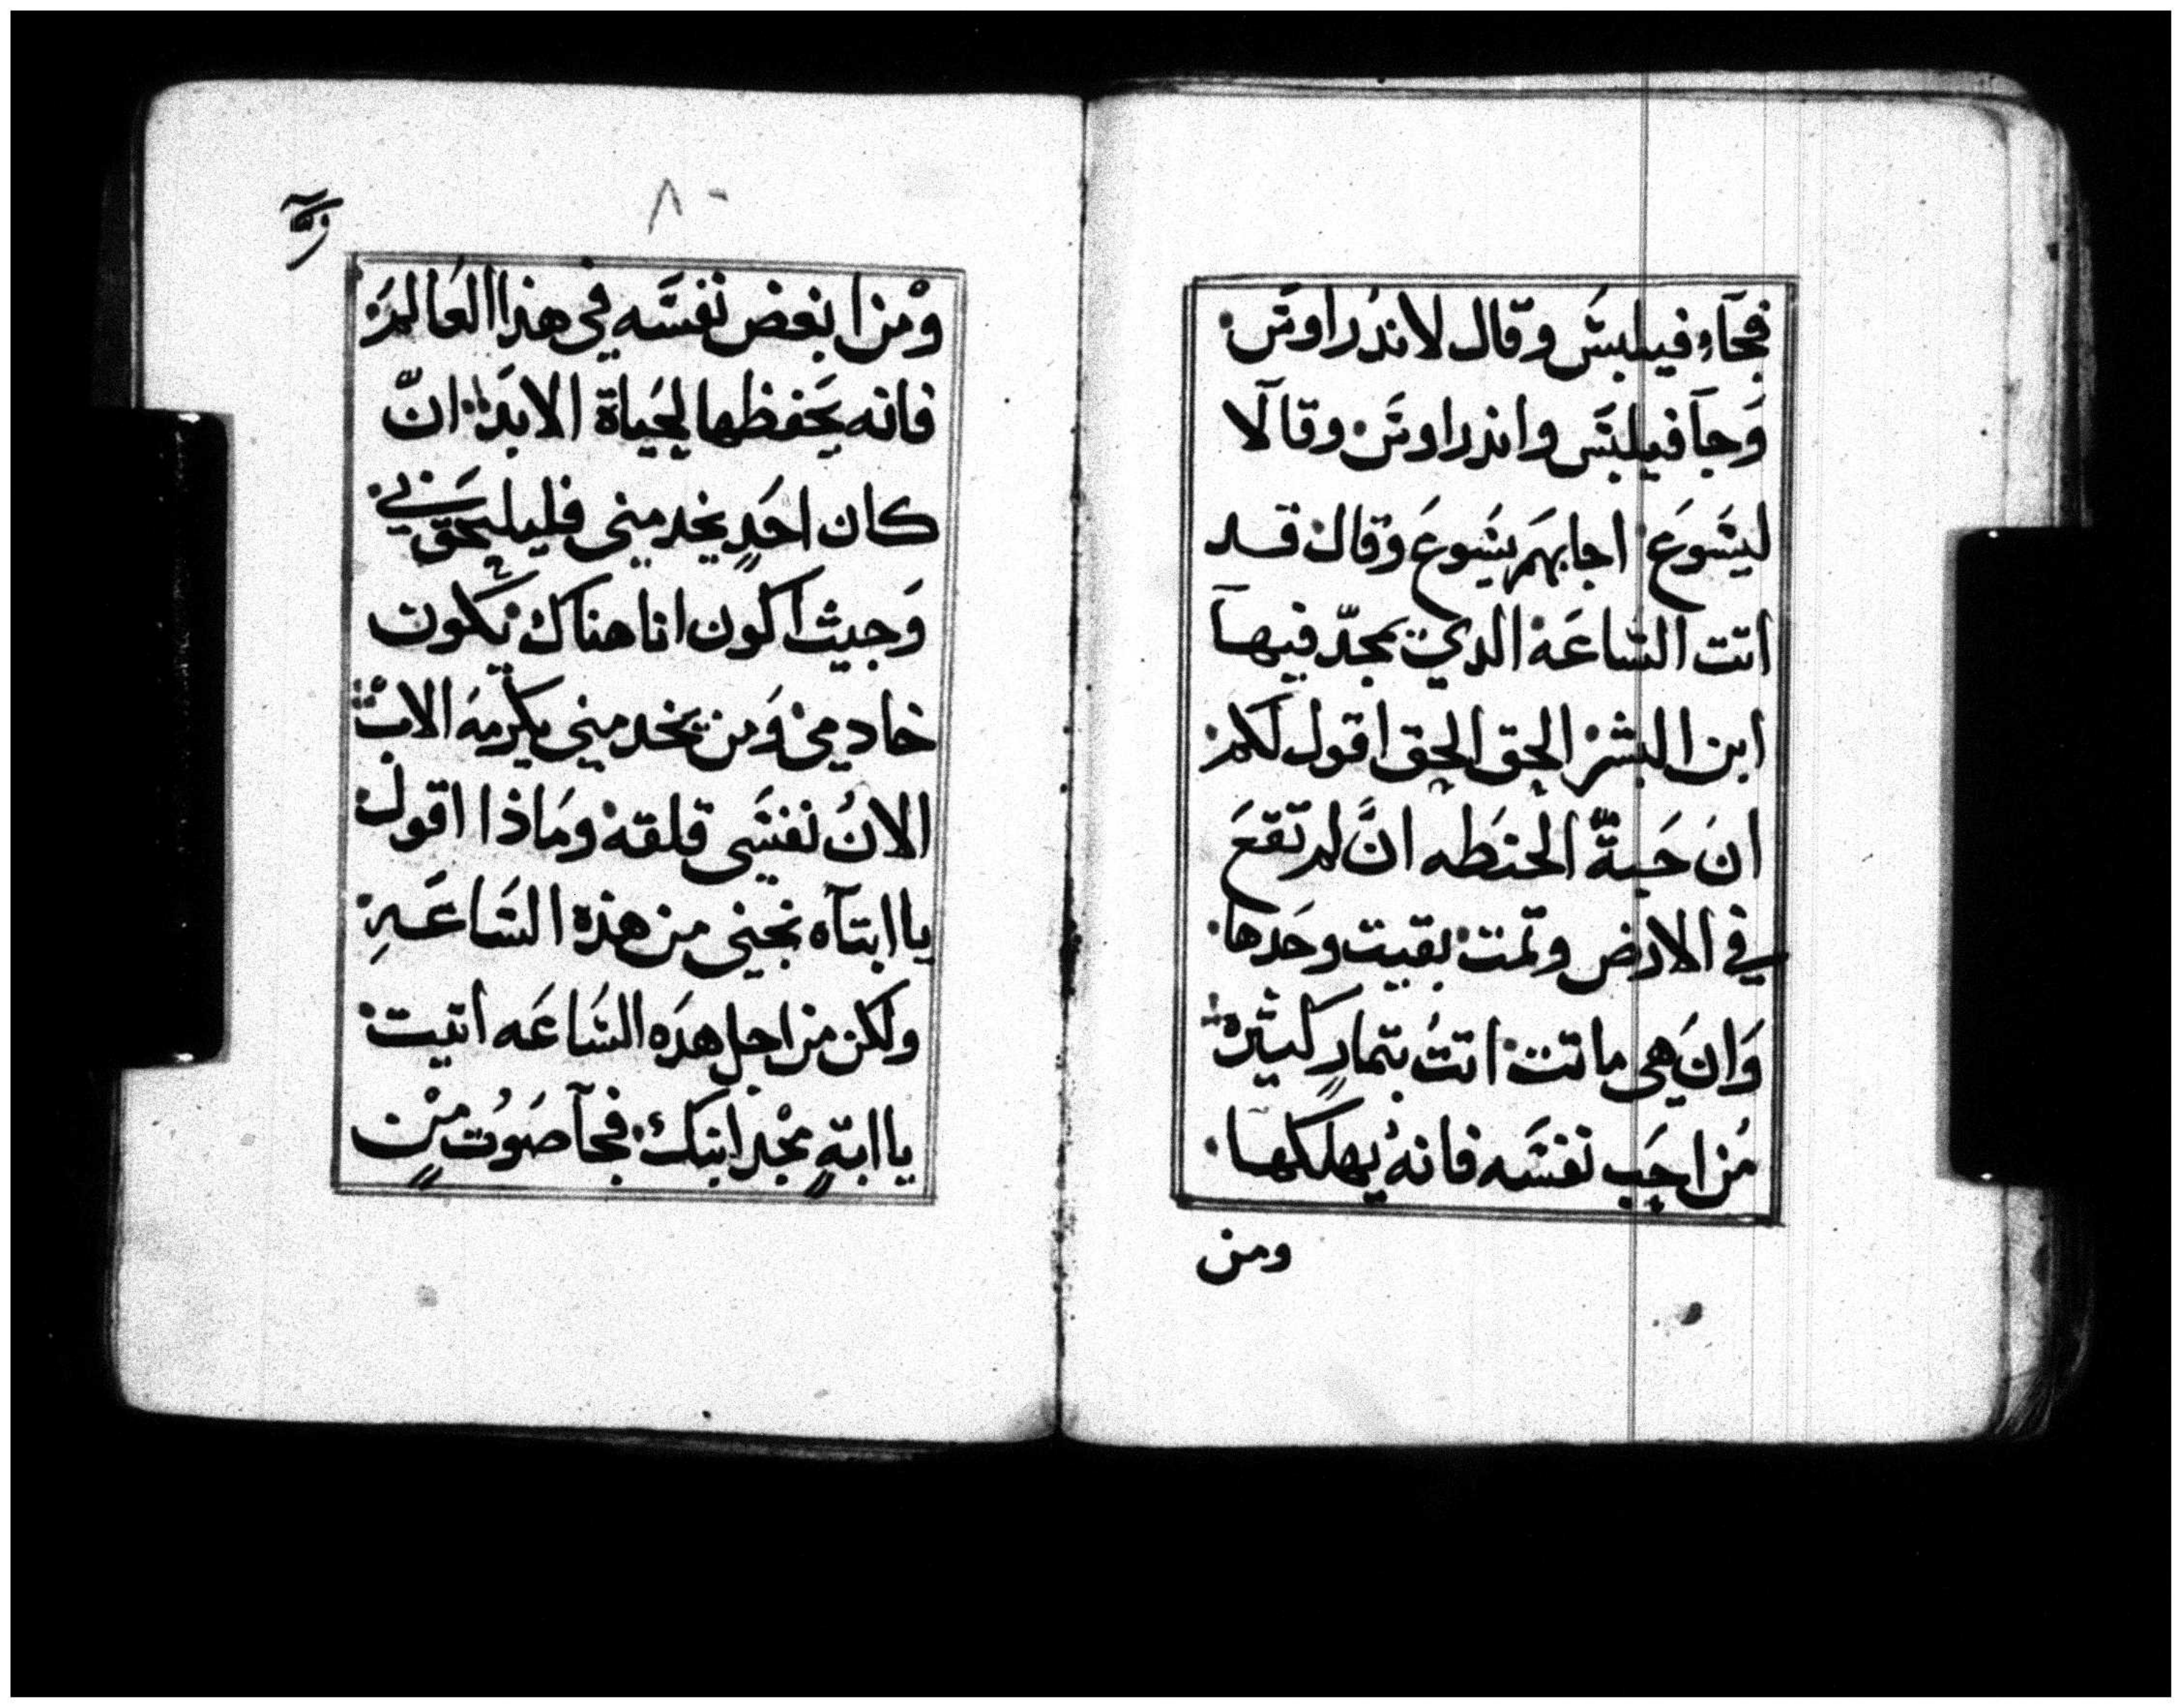 فجآء فيلبس وقال لاندراوس
وجآ فيلبس واندراوس وقالا
ليسوع اجابهم يسوع وقال قد
اتت الساعه الدي يمجد فيها
ابن البشر الحق الحق اقول لكم
ان حبة الحنطه ان لم تقع
في الارض وتمت بقيت وحدها
وان هي ماتت اتت بتمار كثيره
من احب نفسه فانه يهلكها
ومن
٨٠
ومن ابغض نفسه في هذا العالم
فانه يحفظها لحياة الابد ان
كان احد يخدمني فليلحقني
وحيث اكون انا هناك يكون
خادمي ومن يخدمني يكرمه الاب
الان نفسي قلقه وماذا اقول
يا ابتاه نجيني من هذه الساعه
ولكن من اجل هده الساعه اتيت
يا ابة مجد ابنك فجآ صوت من